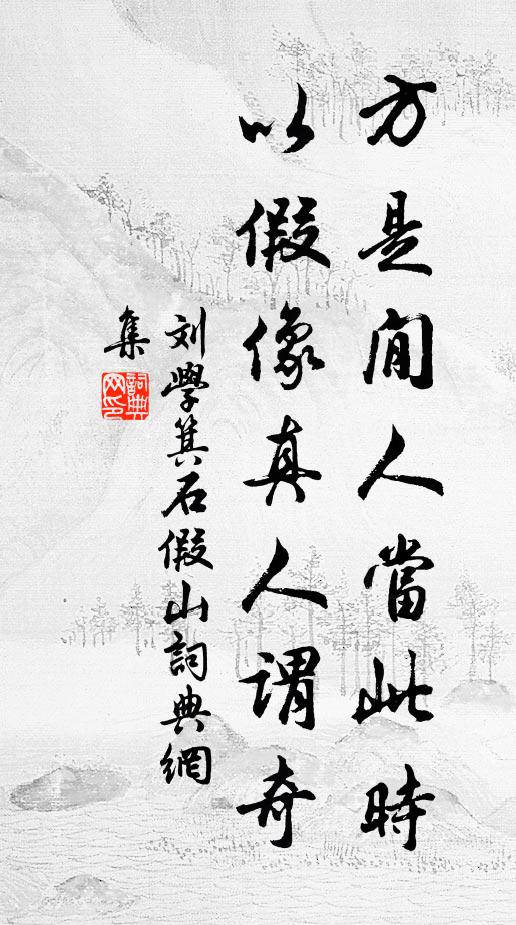 方是閒人當此時
以假像真人謂奇
刘學箕石假山詞典網
集
詞典
网印